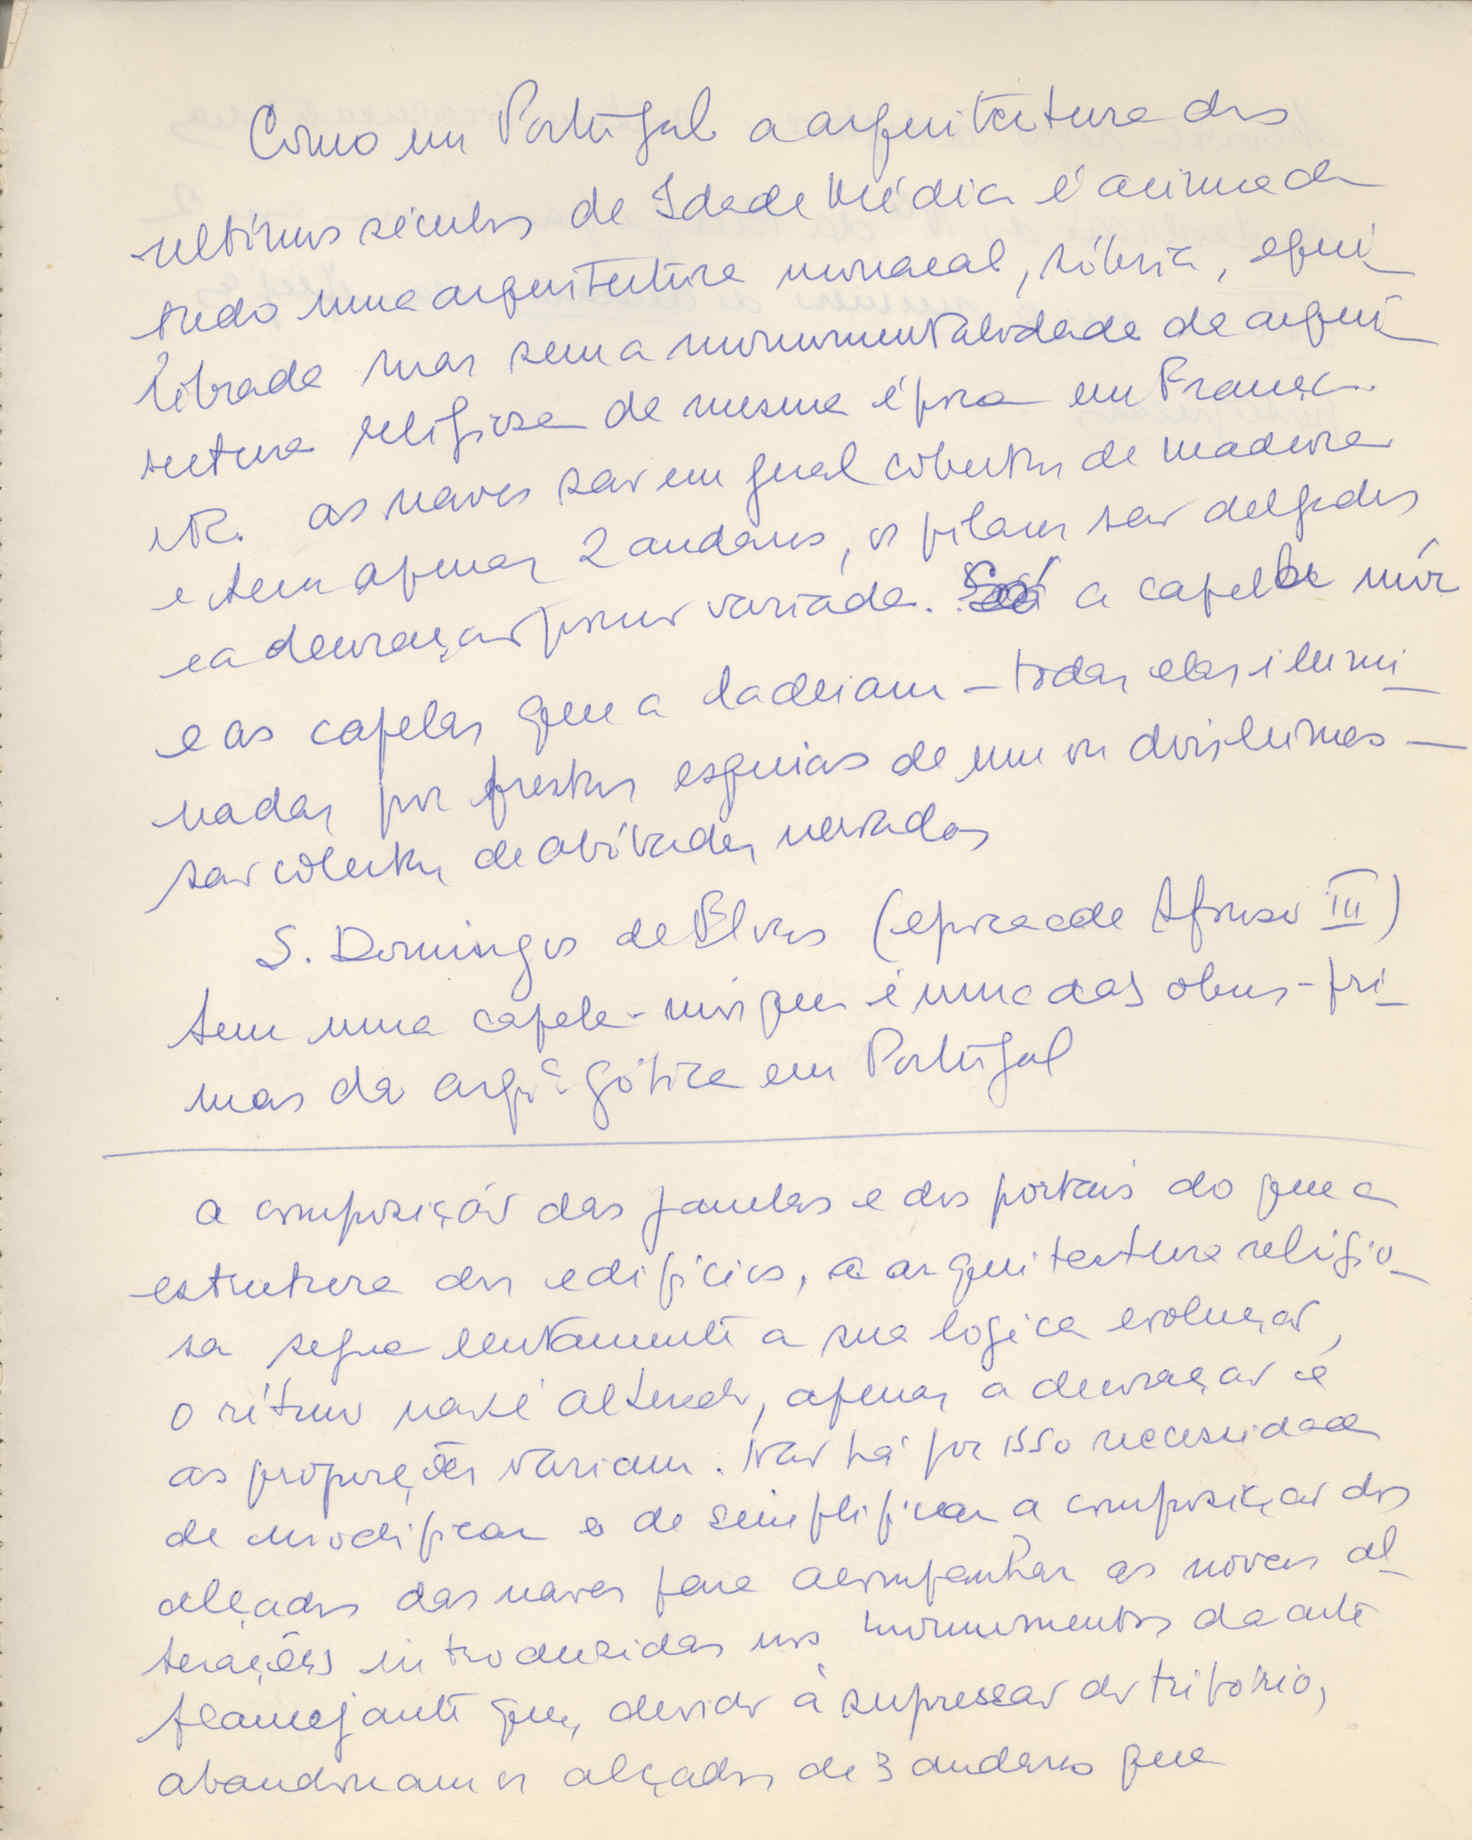 Como em Portugal a arquitectura dos
ultimos séculos da Idade Média é acima de
tudo uma arquitectura monacal, sóbria, equi-
librada mas sem a monumentalidade da arqui-
tectura religiosa da mesma época em França.
NR. as naves são em geral cobertas de madeira
e tem apenas 2 andares, os pilares são delgados
e a decoração pouco variada. Só a capela mór
e as capelas que a ladeiam – todas elas ilumi-
nadas por frestas esguias de um ou dois lumes –
são cobertas de abóbadas nervadas
S. Domingos de Elvas (época de Afonso III)
tem uma capela-mór que é uma das obras-pri-
mas da arqª gótica em Portugal
a composição das janelas e dos portais do que a
estrutura dos edifícios, a arquitectura religio-
sa segue lentamente a sua logica evolução,
o ritmo não é alterado, apenas a decoração e
as proporções variam. Não há por isso necessidade
de modificar e de simplificar a composição dos
alçados das naves para acompanhar as novas al-
terações introduzidas nos monumentos da arte
flamejante que, devido à supressão do trifório,
abandonam os alçados de 3 andares que